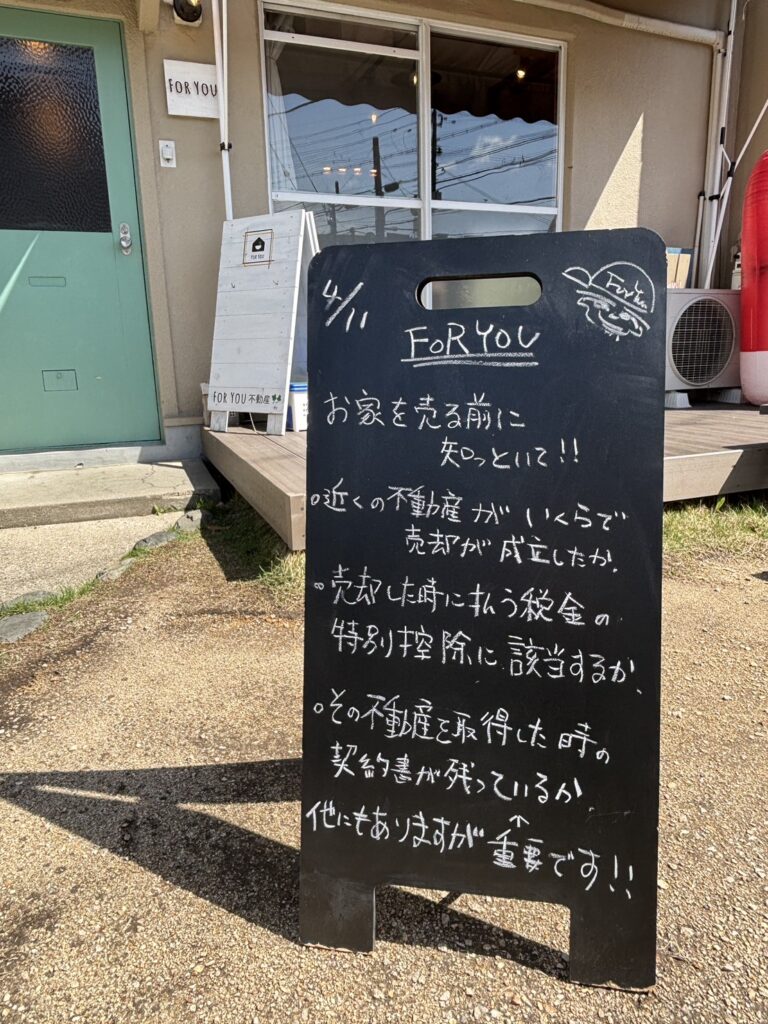 FOR YOU
FOR YOU
FOR YOU 不動産
4/11
For You
FOR YOU
お家を売る前に
知っといて!!
○近くの不動産がいくらで
売却が成立したか.
○売却した時に払う税金の
特別控除に該当するか.
○その不動産を取得した時の
契約書が残っているか.
↑
他にもありますが重要です!!